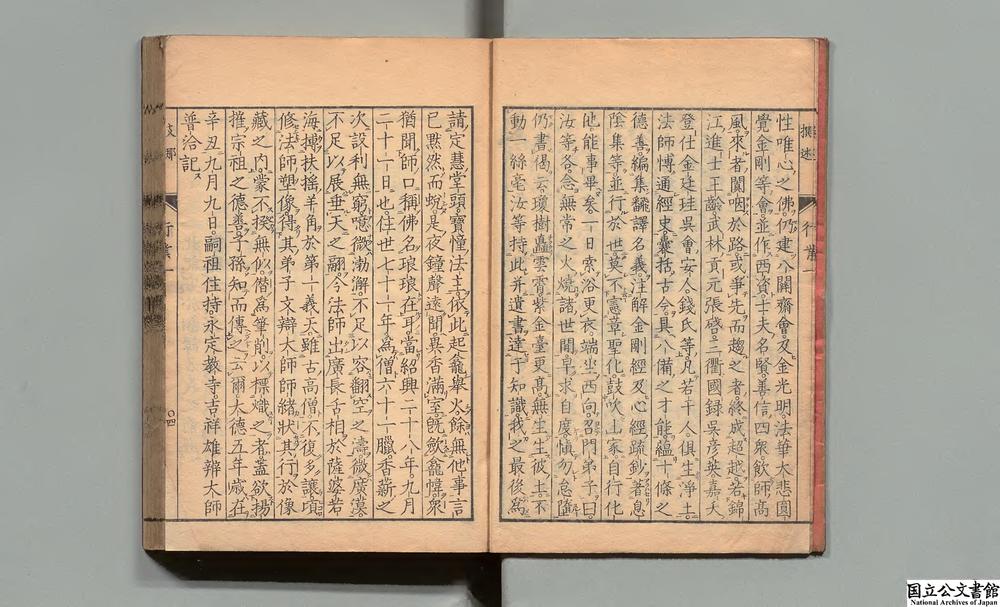 撰述 行業一
性唯心之佛仍建八關齋會及金光明法華大悲圓
覺金剛等會並作西資士夫名賢善信四衆飲師高
風來者闐咽於路或爭先而趨之者終成超越若錦
江進士王齡武林貢元張啓三衢國録吴彦英嘉禾
登仕金廷珪吳會安人錢氏等凡若干人俱生淨土
法師愽通經史囊括古今具八備之才能藴十條之
德善編集翻譯名義注解金剛經及心經疏鈔著息
陰集等並行於世莫不憲章聖化皷吹上家自行化
他能事畢矣一日索浴更衣端坐西向召門弟子曰
汝等各念無常之火燒諸世間早求自度愼勿怠墮
仍書偈云瓊樹矗雲霄紫金臺更髙無生生彼土不
動一絲毫汝等持此并遺書達于知識我之最後為
請定慧堂頭寳憧法主依此起龕舉火餘無他事言
已黙然而蜕是夜鐘聲遠聞異香滿室旣斂龕幃衆
猶聞師口稱佛名琅琅在耳當紹興二十八年九月
二十一日也住世七十一年為僧六十一臘香薪之
次設利無窮噫微渤澥不足以容翻空之濤微廣漠
不足以展垂天之翮今法師出廣長舌相於薩婆若
海摶扶揺羊角於第一義天雖古高僧不復多讓頃
修法師塑像得其弟子文辯大師師緒狀其行於像
藏之内蒙不揆無似僣爲筆削以標熾之者蓋欲揚
摧宗祖之德善子孫知而傳之云爾大德五年歳在
辛丑九月九日嗣祖住持永定教寺吉祥雄辨大師
普洽記
支那 行業一 〇四
国立公文書館
National Archives of Japan